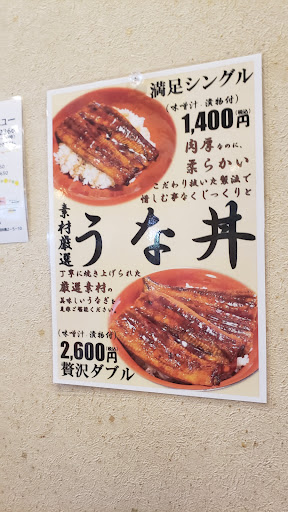 満足シングル
(味噌汁 漬物付)
1,400円(税込)
肉厚なのに、
柔らかい
こだわり抜いた製法で
惜しむ事なくじっくりと
うな丼
素材厳選
丁寧に焼き上げられた
厳選素材の
美味しいうなぎを
是非ご堪能ください。
(味噌汁 漬物付)
2,600円(税込)
贅沢ダブル
ュー